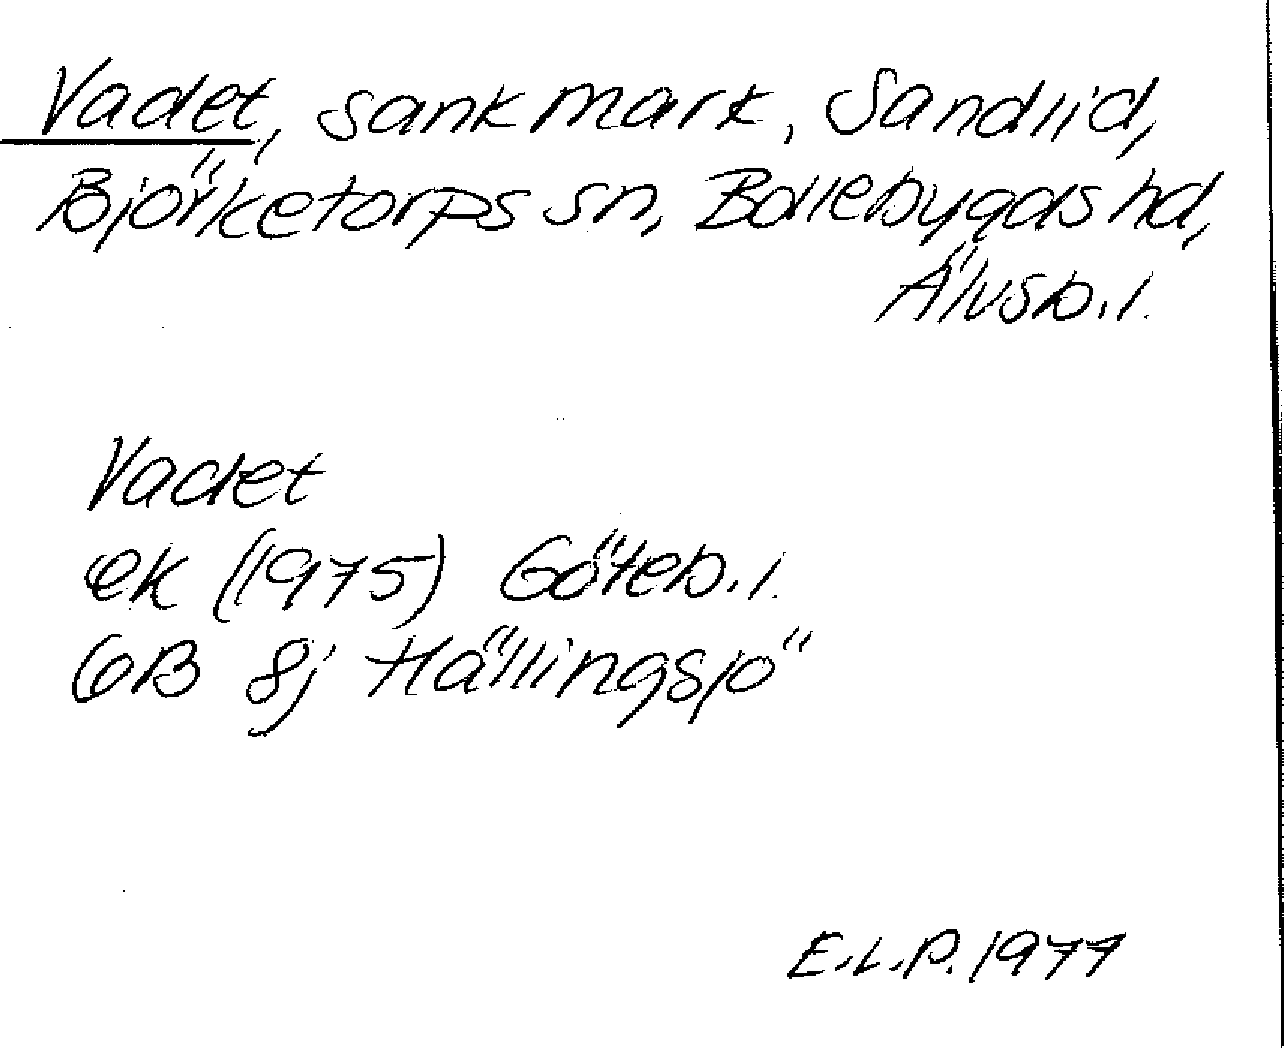 Vadet, sankmark, Sandlid,
Björketorps sn, Bollebygds hd,
Älvsb. l.
Vadet
ek (1975) Göteb. l.
6B 8j Hällingsjö
E.L.P. 1977